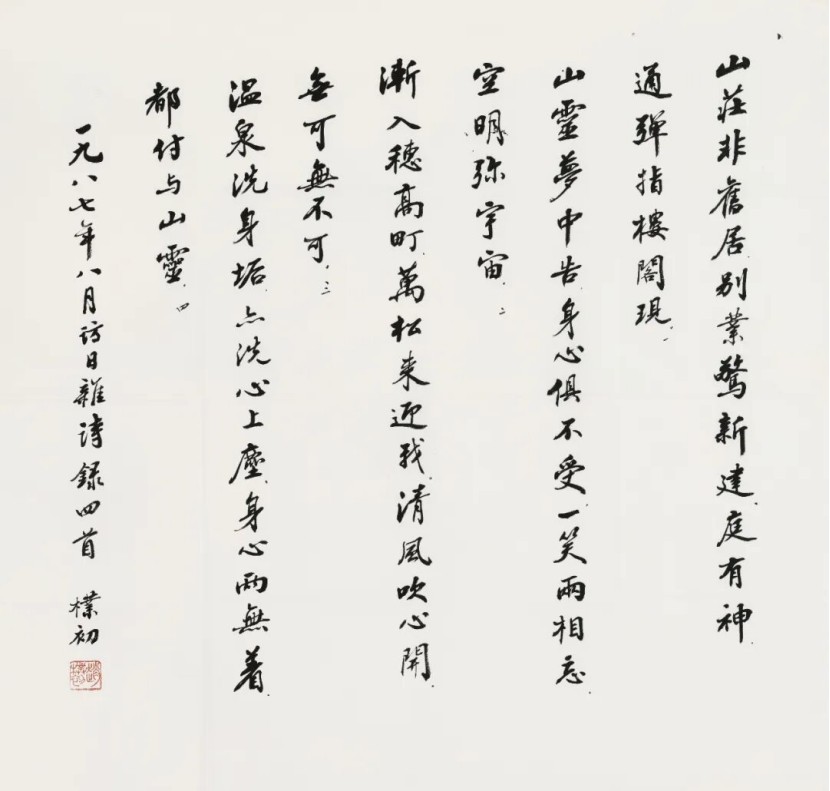 山莊非舊居别業驚新建庭有神
通彈指樓閣現一
山靈夢中告身心俱不受一笑兩相忘
空明弥宇宙二
漸入穗高町萬松来迎我清風吹心開
無可無不可三
温泉洗身垢亦洗心上塵身心兩無着
都付与山靈四
一九八七年八月訪日雜詩録四首 樸初